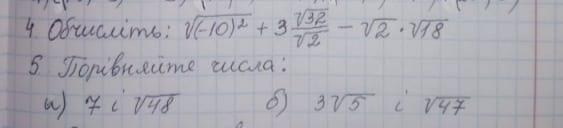 4. Обчисліть: √(-10)² + 3 √32/√2 - √2 · √18
5 Порівняйте числа:
а) 7 і √48 б) 3√5 і √47